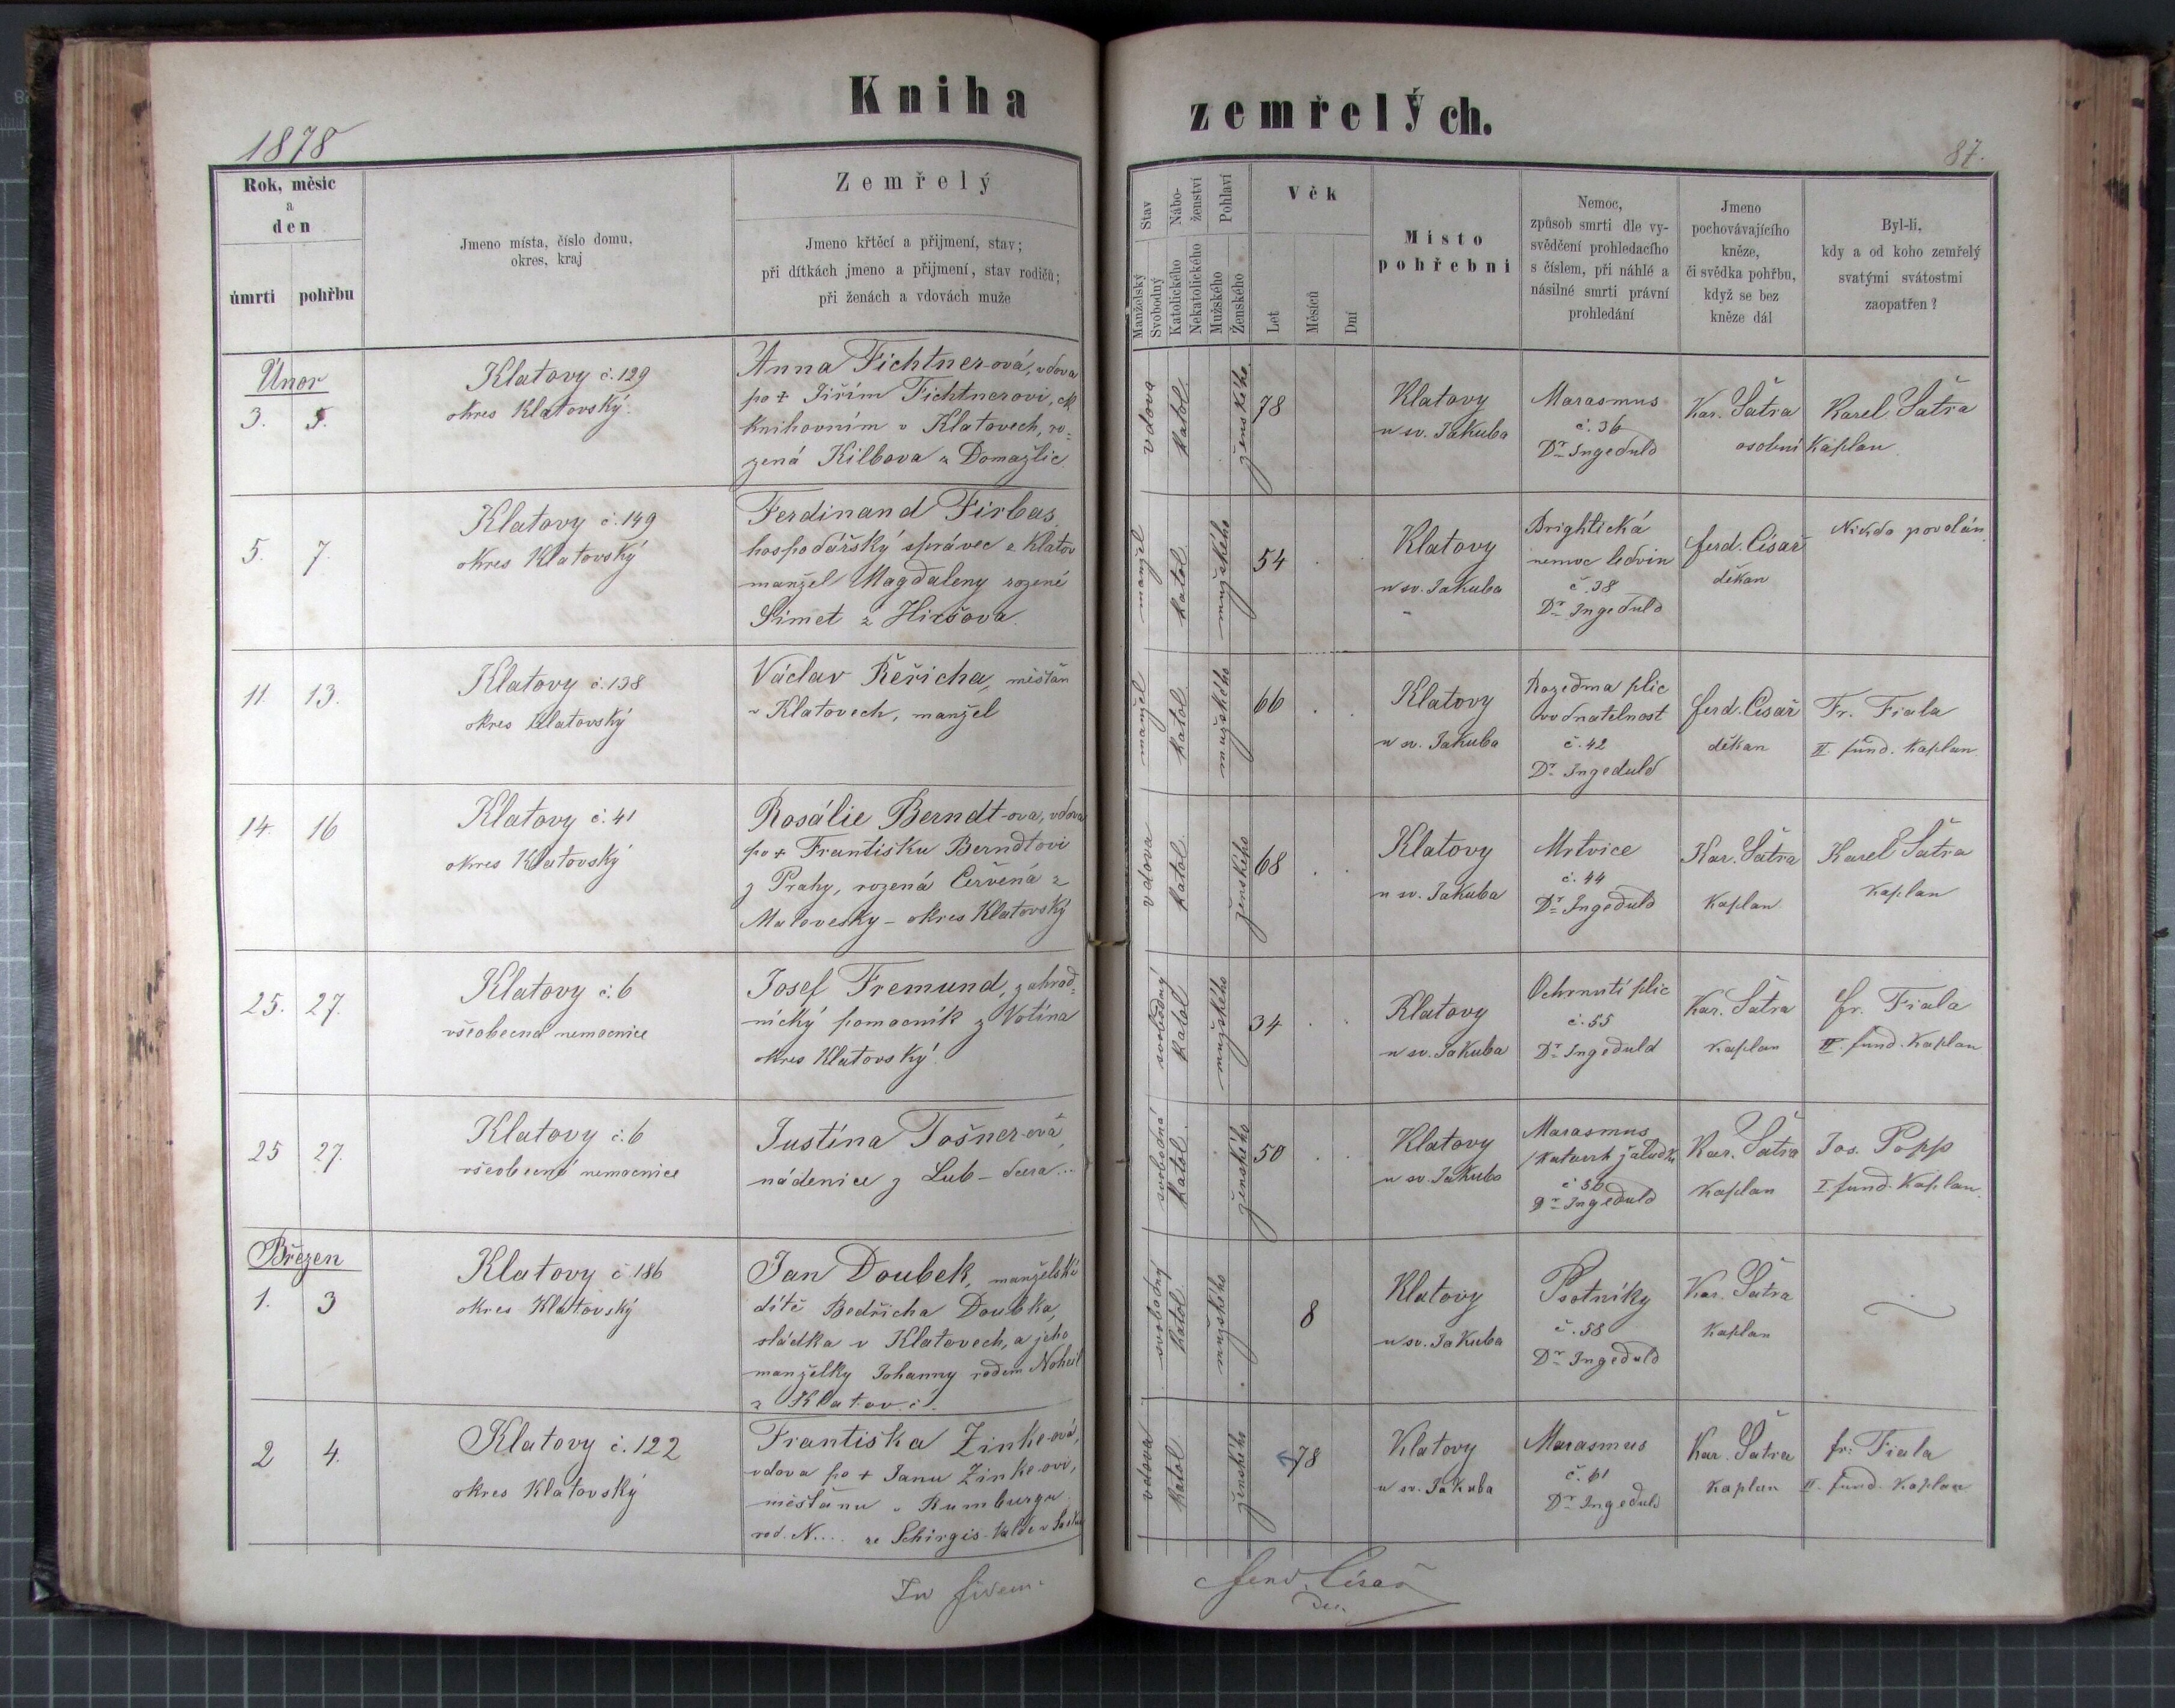 Kniha zemřelých.
1878
87.
Rok, měsíc
a
den
úmrtí pohřbu
Jmeno místa, číslo domu,
okres, kraj
Zemřelý
Jmeno křtěcí a přijmení, stav;
při dítkách jmeno a přijmení, stav rodičů;
při ženách a vdovách muže
Stav
Manželský
Svobodný
Nábo-
ženství
Katolického
Nekatolického
Pohlaví
Mužského
Ženského
Věk
Let
Měsíců
Dní
Místo
pohřební
Nemoc,
způsob smrti dle vy-
svědčení prohledacího
s číslem, při náhlé a
násilné smrti právní
prohledání
Jmeno
pochovávajícího
kněze,
či svědka pohřbu,
když se bez
kněze dál
Byl-li,
kdy a od koho zemřelý
svatými svátostmi
zaopatřen?
Únor
3. 5.
Klatovy č. 129
okres Klatovský.
Anna Fichtner-ová, vdova
po + Jiřím Fichtnerovi,
knihovním v Klatovech, ro-
zená Kilbova z Domažlic
vdova
katol.
ženského
78
Klatovy
u sv. Jakuba
Marasmus
č. 36
Dr Ingeduld
Kar. Šatra
osobní
Karel Šatra
kaplan
5. 7.
Klatovy č. 149
okres Klatovský
Ferdinand Firbas
hospodářský správec z Klatov
manžel Magdaleny rozené
Simet z Hiršova.
manžel
katol.
mužského
54
Klatovy
u sv. Jakuba
Brightická
nemoc ledvin
č. 38
Dr Ingeduld
ferd. Císař
děkan
Nikdo povolán.
11. 13.
Klatovy č. 138
okres Klatovský
Václav Řeřicha, měšťan
v Klatovech, manžel
manžel
katol.
mužského
66
Klatovy
u sv. Jakuba
Rozedma plic
vodnatelnost
č. 42
Dr Ingeduld
ferd. Císař
děkan
Fr. Fiala
II. fund. kaplan
14. 16
Klatovy č. 41
okres Klatovský
Rosálie Berndt-ova, vdova
po + Frantisku Berndtovi
z Prahy, rozená Červená z
Malovesky - okres Klatovský
vdova
katol.
ženského
68
Klatovy
u sv. Jakuba
Mrtvice
č. 44
Dr Ingeduld
Kar. Šatra
kaplan
Karel Šatra
kaplan
25. 27.
Klatovy č. 6
všeobecná nemocnice
Josef Fremund, zahrad-
nický pomocník z Votína
okres Klatovský.
svobodný
katol.
mužského
34
Klatovy
u sv. Jakuba
Ochrnutí plic
č. 55
Dr Ingeduld
Kar. Šatra
kaplan
fr. Fiala
II. fund. kaplan
25 27.
Klatovy č. 6
všeobecná nemocnice
Justina Tošner-ová,
nádenice z Lub - dcera...
svobodná
katol.
ženského
50
Klatovy
u sv. Jakuba
Marasmus
/katarrh žaludku
č 56
Dr Ingeduld
Kar. Šatra
kaplan
Jos. Popp
I. fund. kaplan.
Březen
1. 3
Klatovy č 186
okres Klatovský
Jan Doubek, manželské
dítě Bedřicha Doubka,
sládka v Klatovech, a jeho
manželky Johanny rodem
z Klatov.
svobodný
katol.
mužského
8
Klatovy
u sv. Jakuba
Psotníky
č. 58
Dr Ingeduld
Kar. Šatra
kaplan
2 4.
Klatovy č. 122
okres Klatovský
Frantiska Zinke-ová,
vdova po + Janu Zinke-ovi,
měšťanu v Rumburgu
rod. N.... ze Schirgis-Walde v
vdova
katol.
ženského
78
Klatovy
u sv. Jakuba
Marasmus
č. 61
Dr Ingeduld
Kar. Šatra
kaplan
fr. Fiala
II. fund. kaplan
In fidem
ferd. Císař